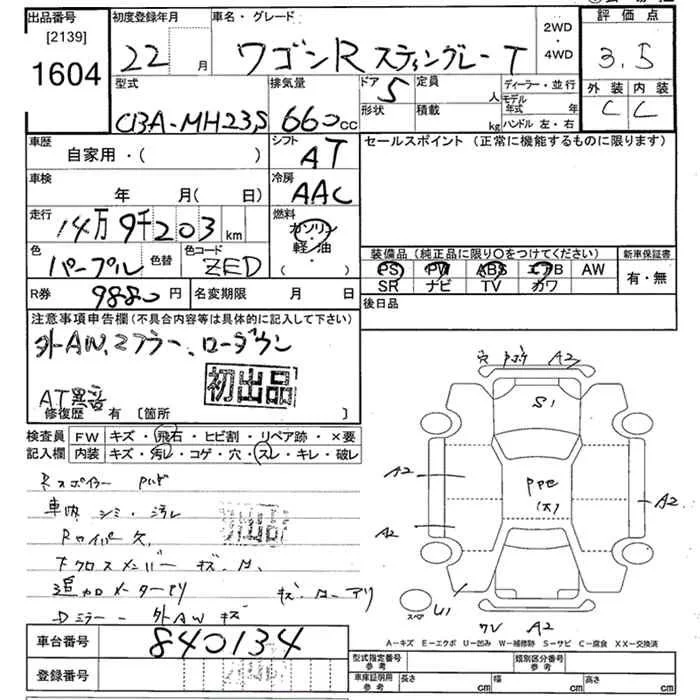 出品番号
[2139]
1604
初度登録年月
22 月
車名・グレード
ワゴンR スティングレーT
2WD
・
4WD
評価点
3.5
型式
CBA-MH23S
排気量
660cc
ドア 5
形状
定員 人
積載 kg
ディーラー・並行
モデル年式 年
ハンドル 左・右
外装 内装
C C
車歴
自家用・( )
シフト
AT
セールスポイント (正常に機能するものに限ります)
車検
年 月(日)
冷房
AAC
走行
14万9千203km
燃料
ガソリン
軽油
・
色
パープル
色替
色コード
ZED
装備品(純正品に限り○をつけてください)
PS PW ABS エアB AW
SR ナビ TV カワ
新車保証書
有・無
R券 9880円
名変期限 月 日
後日品
注意事項申告欄(不具合内容等は具体的に記入して下さい)
外AW、マフラー、ローダウン
初出品
AT異音
修復歴 有 [箇所 ]
検査員記入欄
FW キズ・飛石・ヒビ割・リペア跡・×要
内装 キズ・汚レ・コゲ・穴・スレ・キレ・破レ
Rスポイラー
車内 シミ・汚レ
Rワイパー欠
Fクロスメンバー キズ
追加メーターアリ
Dミラー 外AW キズ
初出品
車台番号 840134
登録番号
A2
S1
A2
A2
A2
PPE
(大)
スペア
U1
A2
A-キズ E-エクボ U-凹み W-補修跡 S-サビ C-腐食 XX-交換済
型式指定番号 参考
類別区分番号 参考
車庫証明用 参考
長さ cm
幅 cm
高さ cm